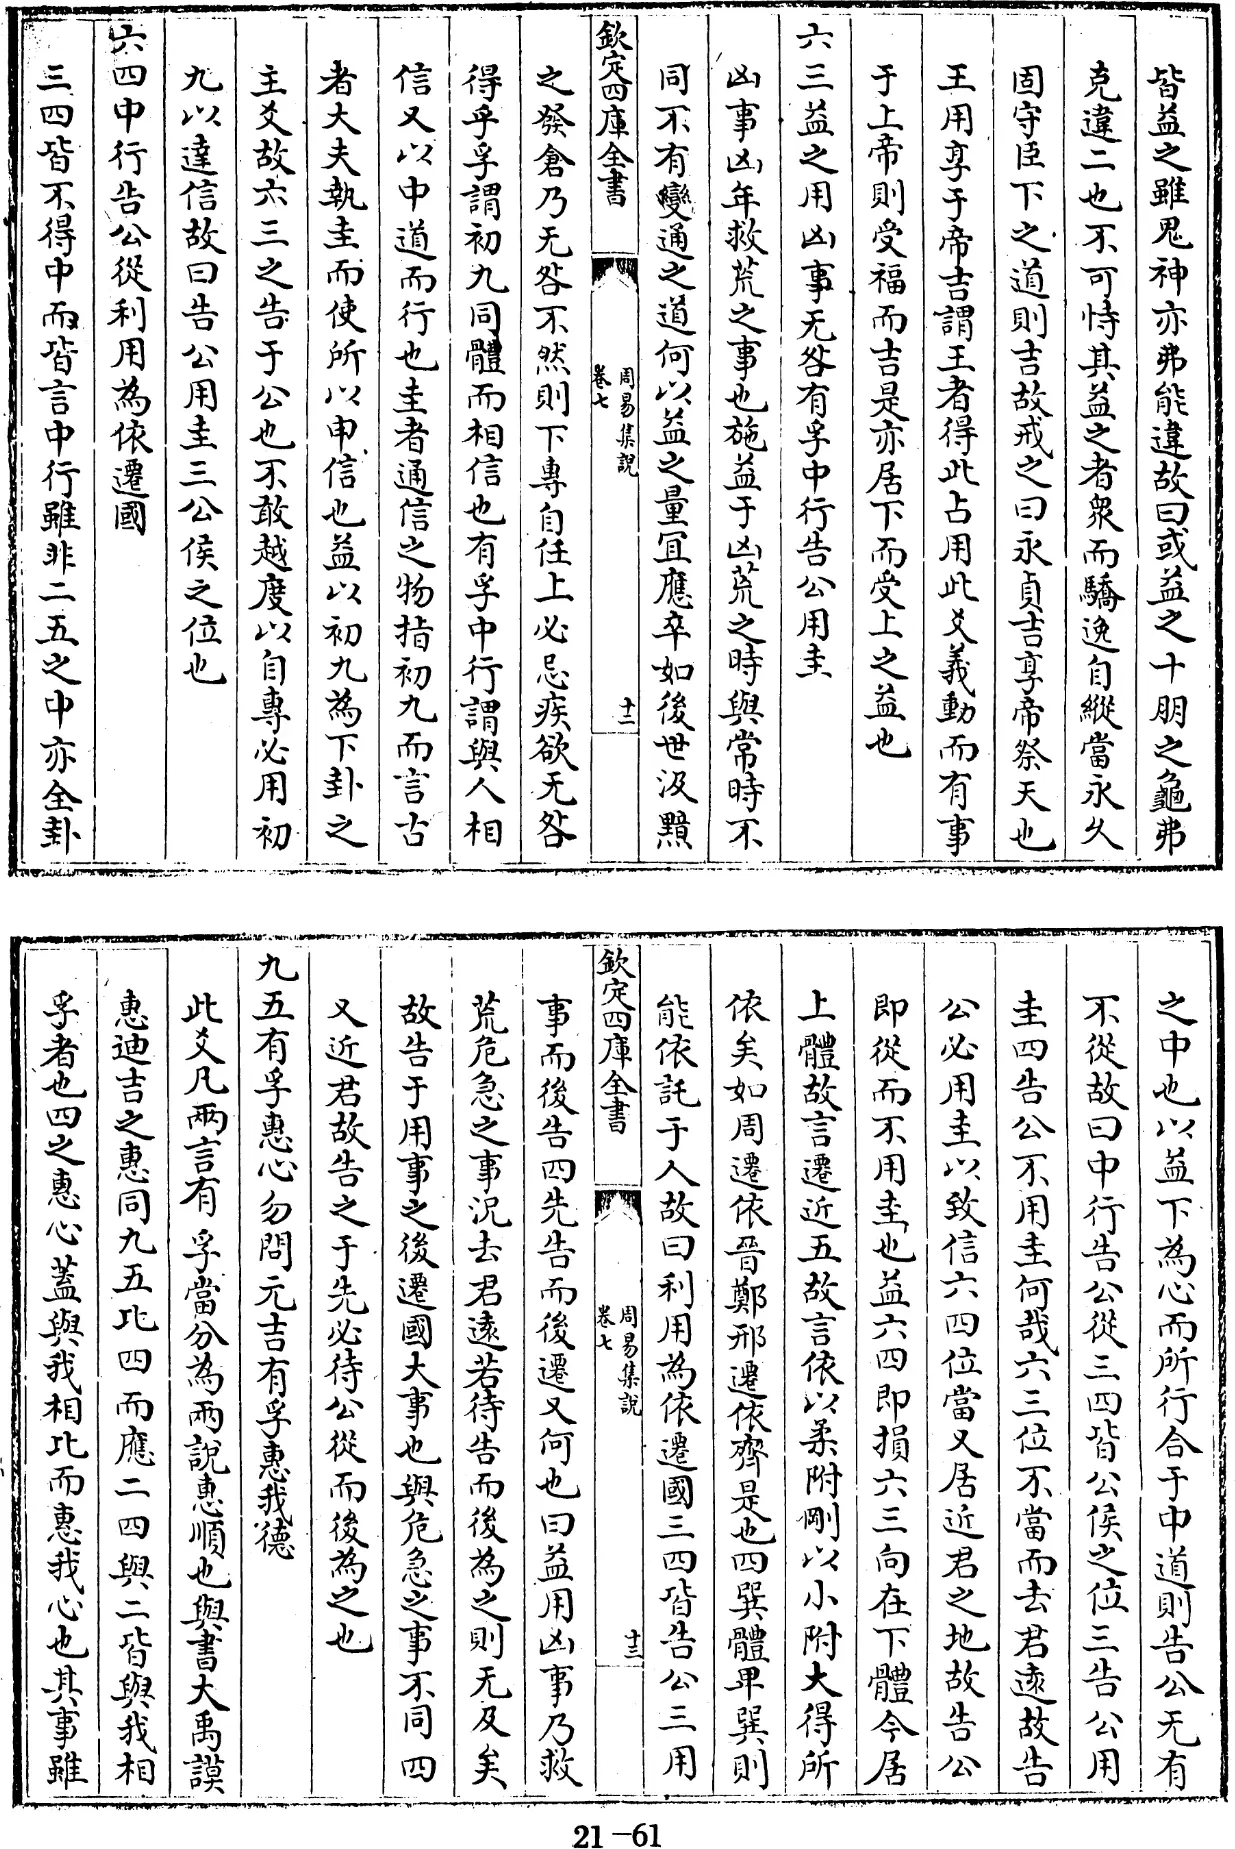 皆益之雖鬼神亦弗能違故曰或益之十朋之龜弗
克違二也不可恃其益之者衆而驕逸自縱當永久
固守臣下之道則吉故戒之曰永貞吉享帝祭天也
王用享于帝吉謂王者得此占用此爻義動而有事
于上帝則受福而吉是亦居下而受上之益也
六三益之用凶事无咎有孚中行告公用圭
凶事凶年救荒之事也施益于凶荒之時與常時不
同不有變通之道何以益之量宜應卒如後世汲黯
欽定四庫全書
周易集說
卷七
十二
之發倉乃无咎不然則下專自任上必忌疾欲无咎
得乎孚謂初九同體而相信也有孚中行謂與人相
信又以中道而行也圭者通信之物指初九而言古
者大夫執圭而使所以申信也益以初九為下卦之
主爻故六三之告于公也不敢越度以自專必用初
九以達信故曰告公用圭三公侯之位也
六四中行告公從利用為依遷國
三四皆不得中而皆言中行雖非二五之中亦全卦
之中也以益下為心而所行合于中道則告公无有
不從故曰中行告公從三四皆公侯之位三告公用
圭四告公不用圭何哉六三位不當而去君遠故告
公必用圭以致信六四位當又居近君之地故告公
即從而不用圭也益六四即損六三向在下體今居
上體故言遷近五故言依以柔附剛以小附大得所
依矣如周遷依晉鄭邢遷依齊是也四巽體卑巽則
能依託于人故曰利用為依遷國三四皆告公三用
欽定四庫全書
周易集說
卷七
十三
事而後告四先告而後遷又何也曰益用凶事乃救
荒危急之事況去君遠若待告而後為之則无及矣
故告于用事之後遷國大事也與危急之事不同四
又近君故告之于先必待公從而後為之也
九五有孚惠心勿問元吉有孚惠我德
此爻凡兩言有孚當分為兩說惠順也與書大禹謨
惠迪吉之惠同九五比四而應二四與二皆與我相
孚者也四之惠心蓋與我相比而惠我心也其事雖
21-61